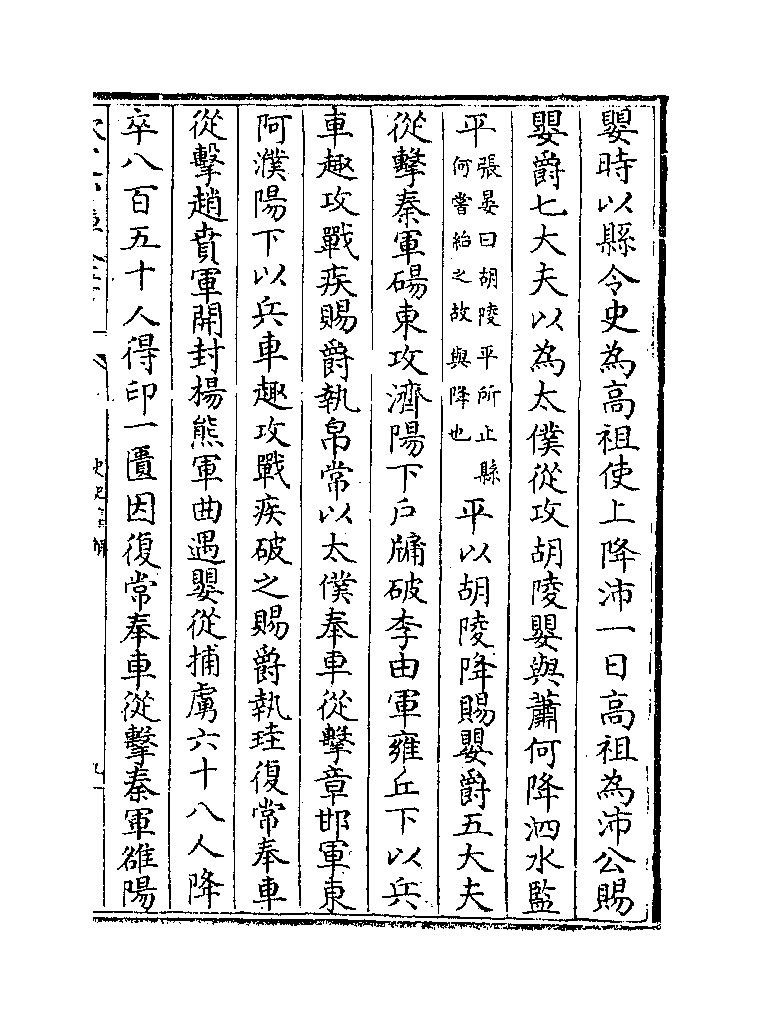 嬰時以縣令史為高祖使上降沛一日高祖為沛公賜
嬰爵七大夫以為太僕從攻胡陵嬰與蕭何降泗水監
平張晏曰胡陵平所止縣何嘗給之故與降也平以胡陵降賜嬰爵五大夫
從擊秦軍碭東攻濟陽下戶牖破李由軍雍丘下以兵
車趣攻戰疾賜爵執帛常以太僕奉車從擊章邯軍東
阿濮陽下以兵車趣攻戰疾破之賜爵執珪復常奉車
從擊趙賁軍開封楊熊軍曲遇嬰從捕虜六十八人降
卒八百五十人得印一匱因復常奉車從擊秦軍雒陽